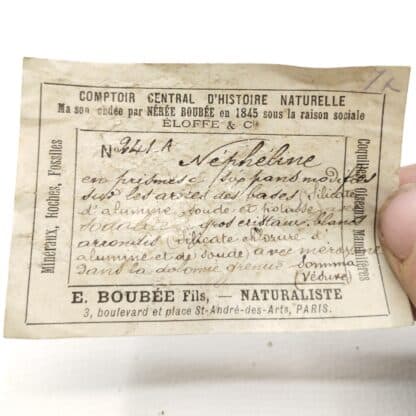 COMPTOIR CENTRAL D'HISTOIRE NATURELLE
Maison fondée par NÉRÉE BOUBÉE en 1845 sous la raison sociale
ÉLOFFE & Cie
Minéraux, Roches, Fossiles
N° 241 A
Néphéline
en prismes modifiés
sur les arêtes des bases (silicate
d'alumine, soude et potasse)
sodalite gros cristaux blancs
arrondis (silicate chlorure d'
alumine et de soude) avec
dans la dolomie grenue Somma
(Vésuve)
Coquilles, Oiseaux, Mammifères
E. BOUBÉE Fils, — NATURALISTE
3, boulevard et place St-André-des-Arts, PARIS.